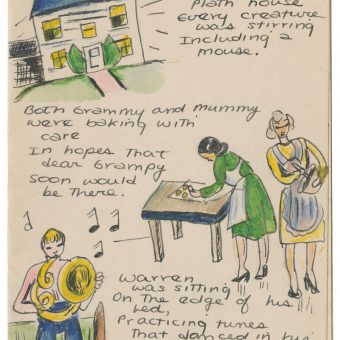 Plath house
Every creature
was stirring
Including a
mouse.
Both Grammy and mummy
were baking with
care
In hopes that
dear Grampy
soon would
be there.
Warren
was sitting
On the edge of his
bed,
Practicing tunes
That danced in his